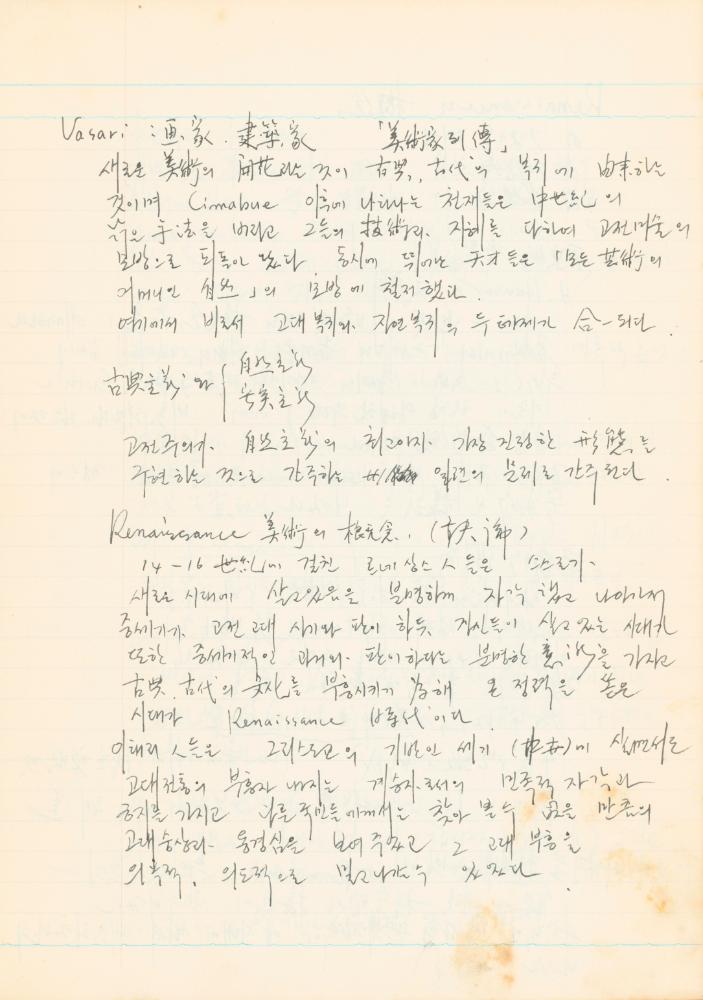 Vasari : 画家. 建築家 「美術家列傳」
새로운 美術의 開花라는 것이 古典, 古代의 복귀에 由来하는
것이며 Cimabue 이후에 나타나는 천재들은 中世紀의
낡은 手法을 버리고 그들의 技術과 지혜를 다하여 고전미술의
모방으로 되돌아 갔다. 동시에 뛰어난 天才들은 「모든 芸術의
어머니인 自然」의 모방에 철저했다.
여기에서 비로서 고대복귀와 자연복귀의 두 테제가 合一되다.
古典主義와 { 自然主義
写実主義
고전주의가 自然主義의 최고이자 가장 진정한 形態를
구현하는 것으로 간주하는 일련의 문제로 간주된다.
Renaissance 美術의 槪念. ( )
14-16 世紀에 걸친 르네상스 人들은 스스로가
새로운 시대에 살고있음을 분명하게 자각했고 나아가서
중세기가 고전고대 시기와 판이하듯, 자신들이 살고 있는 시대가
또한 중세기적인 과거와 판이하다는 분명한 意識을 가지고
古典, 古代의 文化를 부흥시키기 위해 온 정력을 쏟은
시대가 Renaissance 時代이다.
이태리人들은 그리스도교의 기반인 세기 (中世)에 살면서도
고대전통의 부흥자 내지는 계승자로서의 민족적 자각과
긍지를 가지고 다른 국민들에게서는 찾아볼 수 없을 만큼의
고대숭상과 동경심을 보여주었고 그 고대 부흥을
의욕적, 의도적으로 밀고나갈 수 있었다.